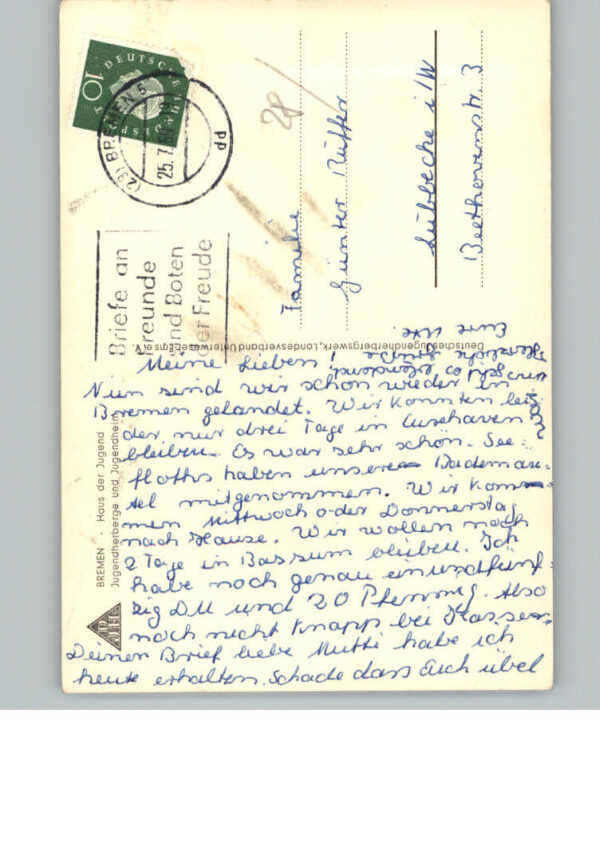 DEUTSCHE BUNDESPOST
10
(23) BREMEN 5
25.7.59
pp
Briefe an
Freunde
und Boten
der Freude
28
Familie
Günter Rüffer
Lübbecke i/W
Beethovenstr. 3
Deutsches Jugendherbergswerk, Landesverband Unterweser-Ems e.V.
BREMEN · Haus der Jugend
Jugendherberge und Jugendheim
DJH
Meine Lieben!
Nun sind wir schon wieder in
Bremen gelandet. Wir konnten lei-
der nur drei Tage in Cuxhaven
bleiben. Es war sehr schön. See-
floths haben unseren Bademan-
tel mitgenommen. Wir kom-
men Mittwoch oder Donnerstag
nach Hause. Wir wollen noch
2 Tage in Bassum bleiben. Ich
habe noch genau einundfünf-
zig DM und 20 Pfennig. Also
noch nicht knapp bei Kasse
Deinen Brief liebe Mutti habe ich
heute erhalten. Schade dass Euch übel
Herzliche Grüße
Eure Ute